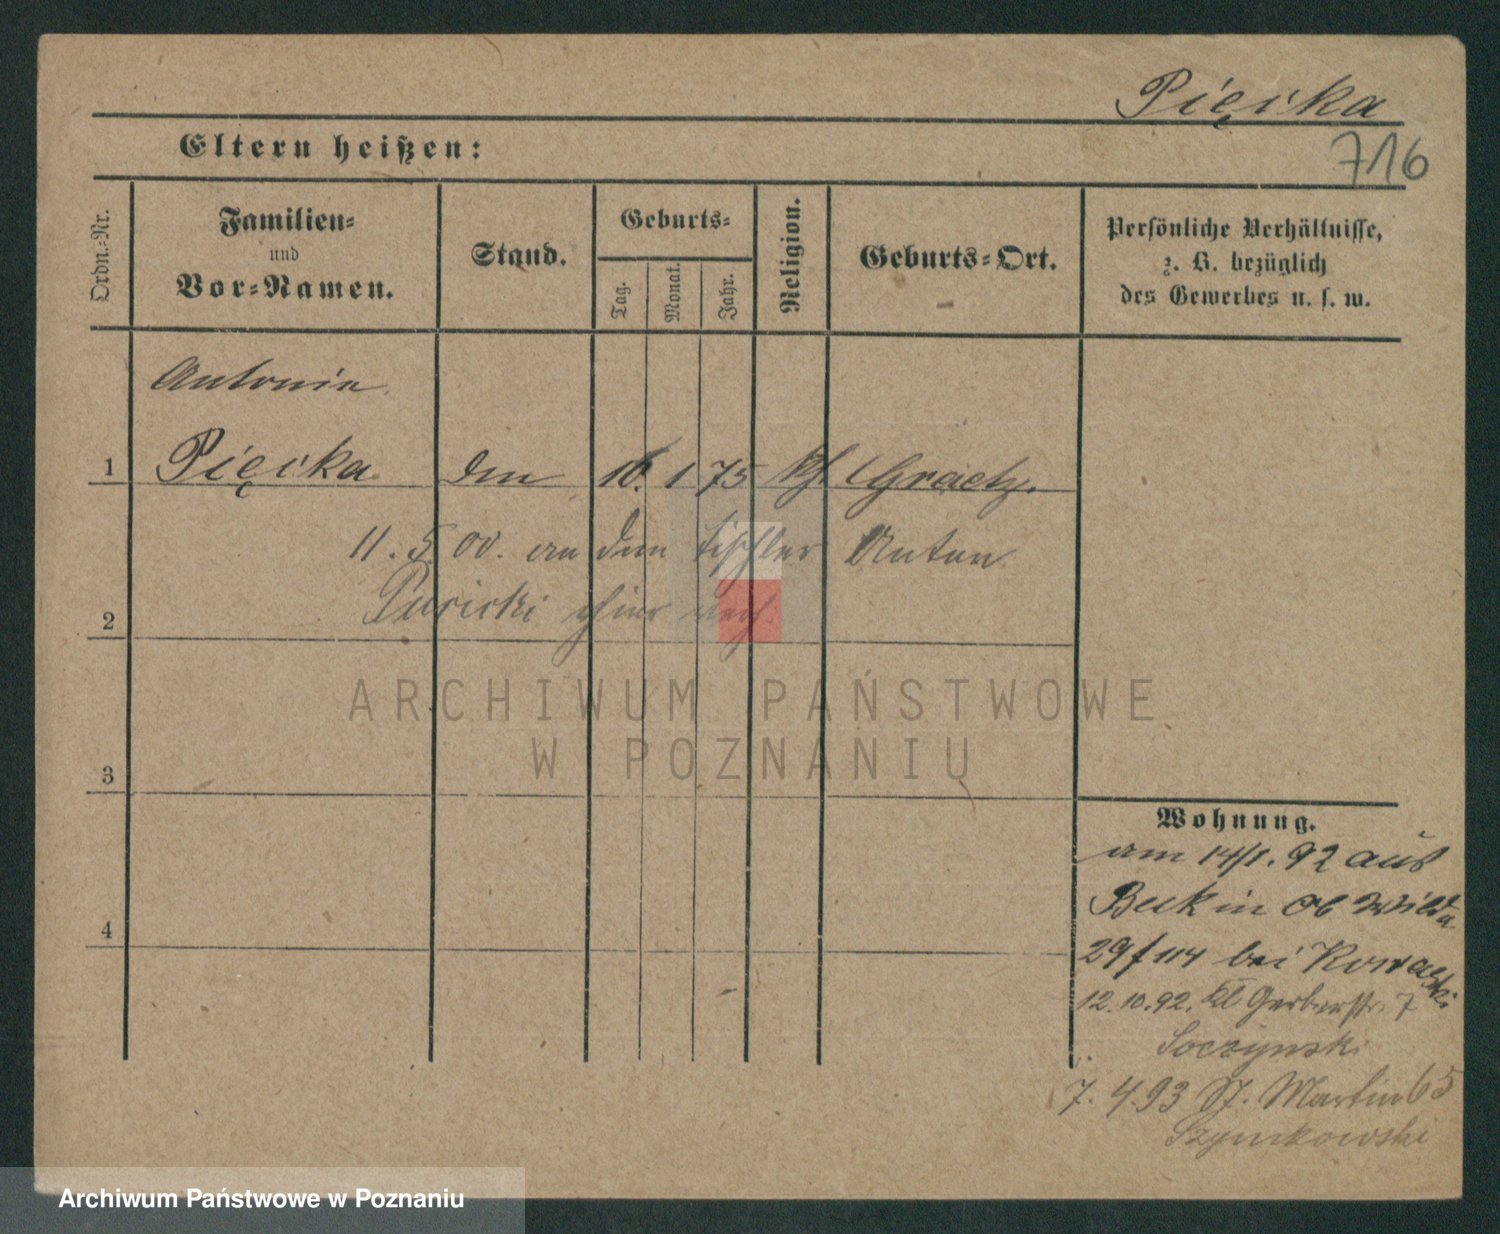 Pięcka
716
Eltern heißen:
Ordn.-Nr.
Familien-
und
Vor-Namen.
Stand.
Geburts-
Tag.
Monat.
Jahr.
Religion.
Geburts-Ort.
Persönliche Verhältnisse,
z. B. bezüglich
des Gewerbes u. s. w.
Antonie
1 Pięcka 16. 1 75 kh. Graetz.
11. 5. 00. an den Tischler Anton
2 hier verh.
ARCHIWUM PAŃSTWOWE
W POZNANIU
3
4
Wohnung.
am 14/1. 92 aus
Ob Wilda
29/114 bei Kowalski
12.10.92. Kl Gerberstr. 7
Soczynski
7. 4.93 St. Martin 65
Szymkowski
Archiwum Państwowe w Poznaniu